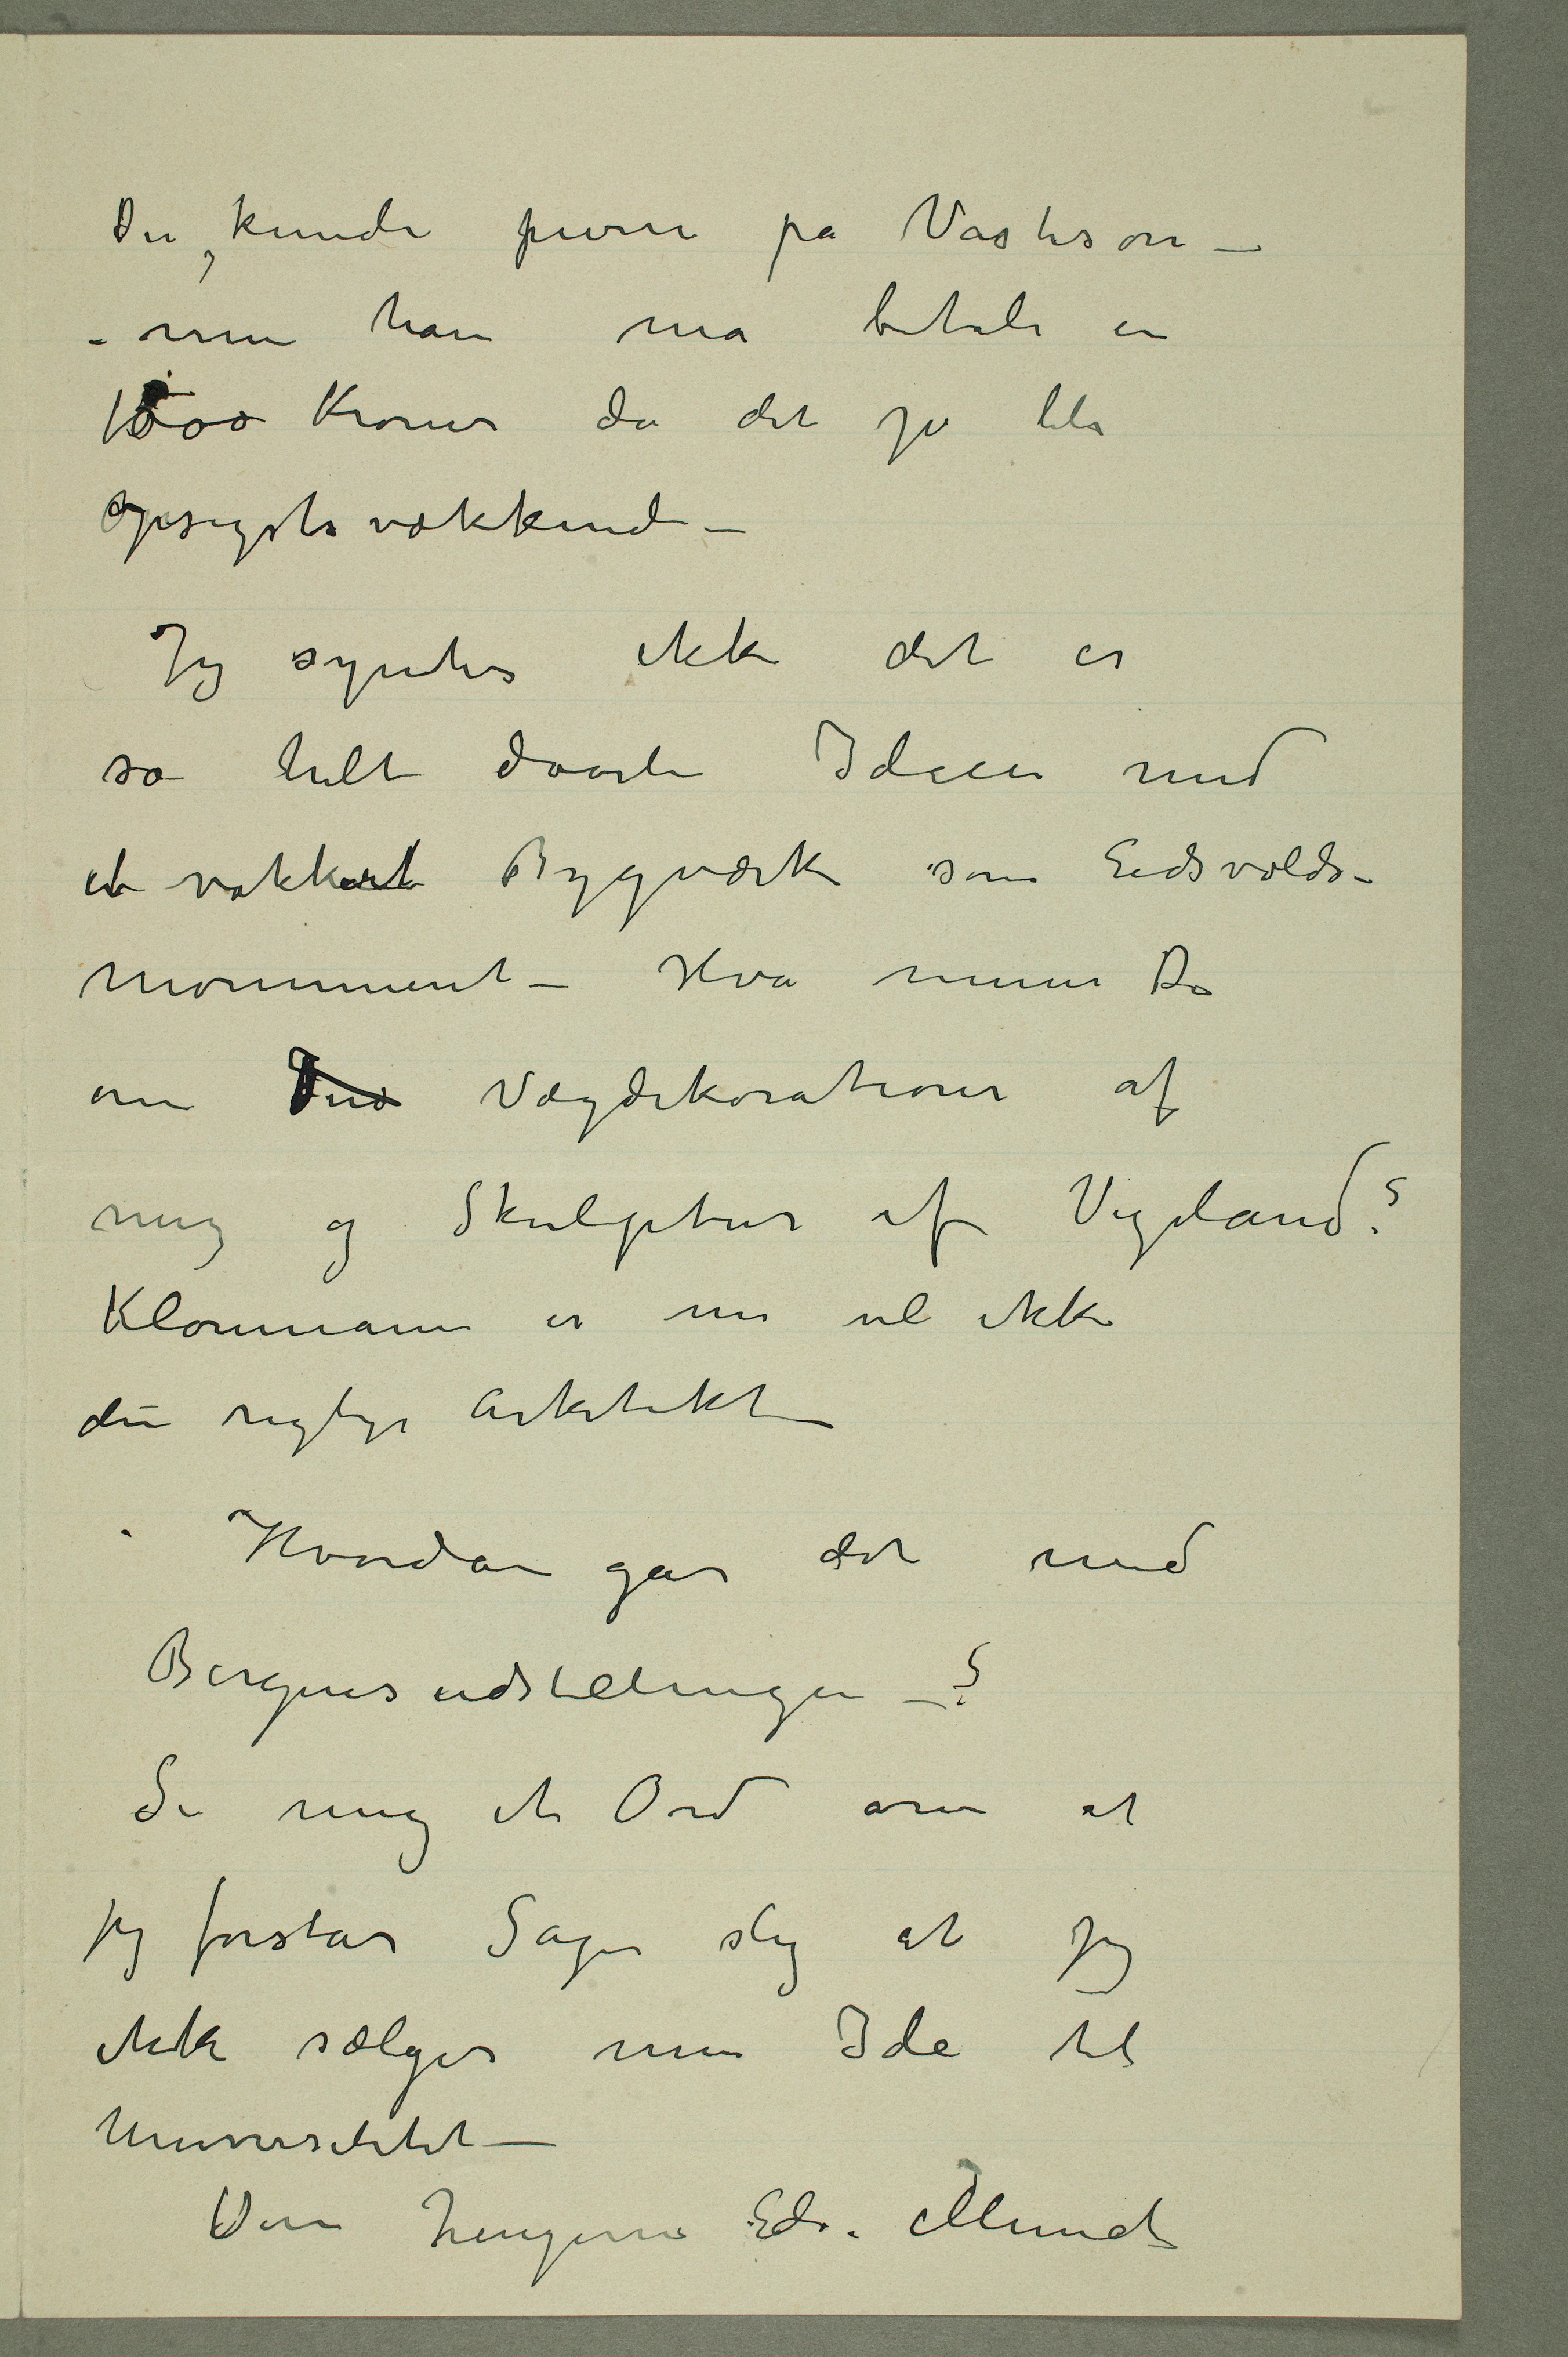 De kunde prøve på Vasteson –
– men han må betale en
1000 Kroner da det jo ble
opsigstsvækkend –
Jeg syntes ikke det er
så helt daarli Ideen med
et vakkert Bygværk som Eidsvolds-
monument – Hva mener De
om Vægdekorationer af
mig og Skulptur af Vigeland?
Klonmann er nu vel ikke
den rigtige Arkitekt
Hvordan går det med
Bergensudstillingen –?
Si mig et Ord om at
jeg forstår Sagen slig at jeg
ikke sælger min Ide til
Universitetet –
Deres hengivne Edv. Munch